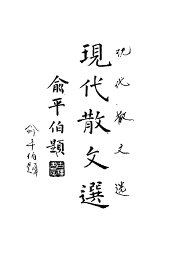 现代散文选
現代散文選
俞平伯題
俞平伯题